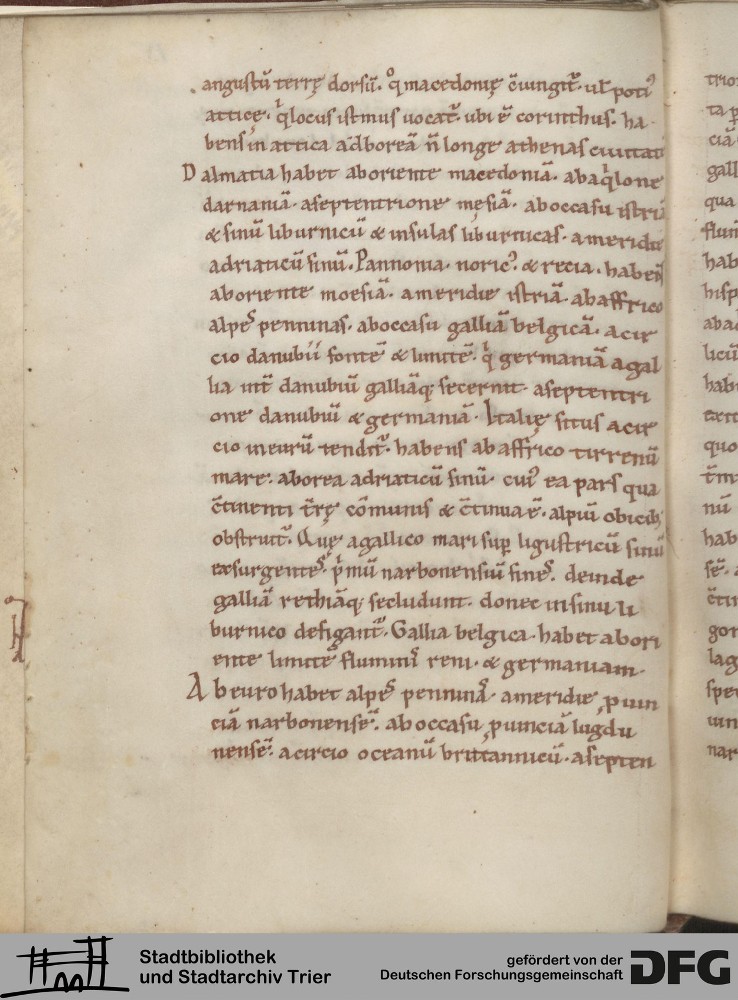 angustū terrę dorsū. qͦ macedonię c̄iungit᷑. ut̄ potiꝰ
atticę. qͥ locus istmus uocat᷑. ubi ē corinthus. ha
bens in attica ad boreā n̄ longe athenas ciuitatē
Dalmatia habet aboriente macedoniā. abaqͥlone
dardaniā. aseptentrione męsiā. aboccasu istriā
& sinū liburnicū & insulas liburticas. ameridie
adriaticū sinū. Pannonia. noricꝰ. & recia. habent
aboriente moesiā. ameridie istriā. abaffrico
alpes penninas. aboccasu galliā belgicā. acir
cio danubii fontē & limitē. qͥ germaniā agal
lia int̄ danubiū galliāq; secernit. aseptentri
one danubiū & germaniā. Italię situs acir
cio ineurū tendit᷑. habens abaffrico tirrenū
mare. aborea adriaticū sinū. cuiꝰ ea pars qua
c̄tinenti t̄rę cōmunis & c̄tinua ē. alpiū obicib;
obstruit᷑. Quę agallico mari sup̄ ligustricū sinū
exsurgentes. pͥmū narbonensiū fines. deinde
galliā rethiāq; secludunt. donec insinu li
burnico defigant᷑. Gallia belgica. habet abori
ente limitē fluminis reni. & germaniam.
Abeuro habet alpes penninas. ameridie ꝓuin
ciā narbonensē. aboccasu ꝓuinciā lugdu
nensē. acircio oceanū brittannicū. asepten
ciā
gall
qua
hab
hisp
licū
hab
quo
nū
hab
lag
nar
Stadtbibliothek
und Stadtarchiv Trier
gefördert von der
Deutschen Forschungsgemeinschaft
DFG